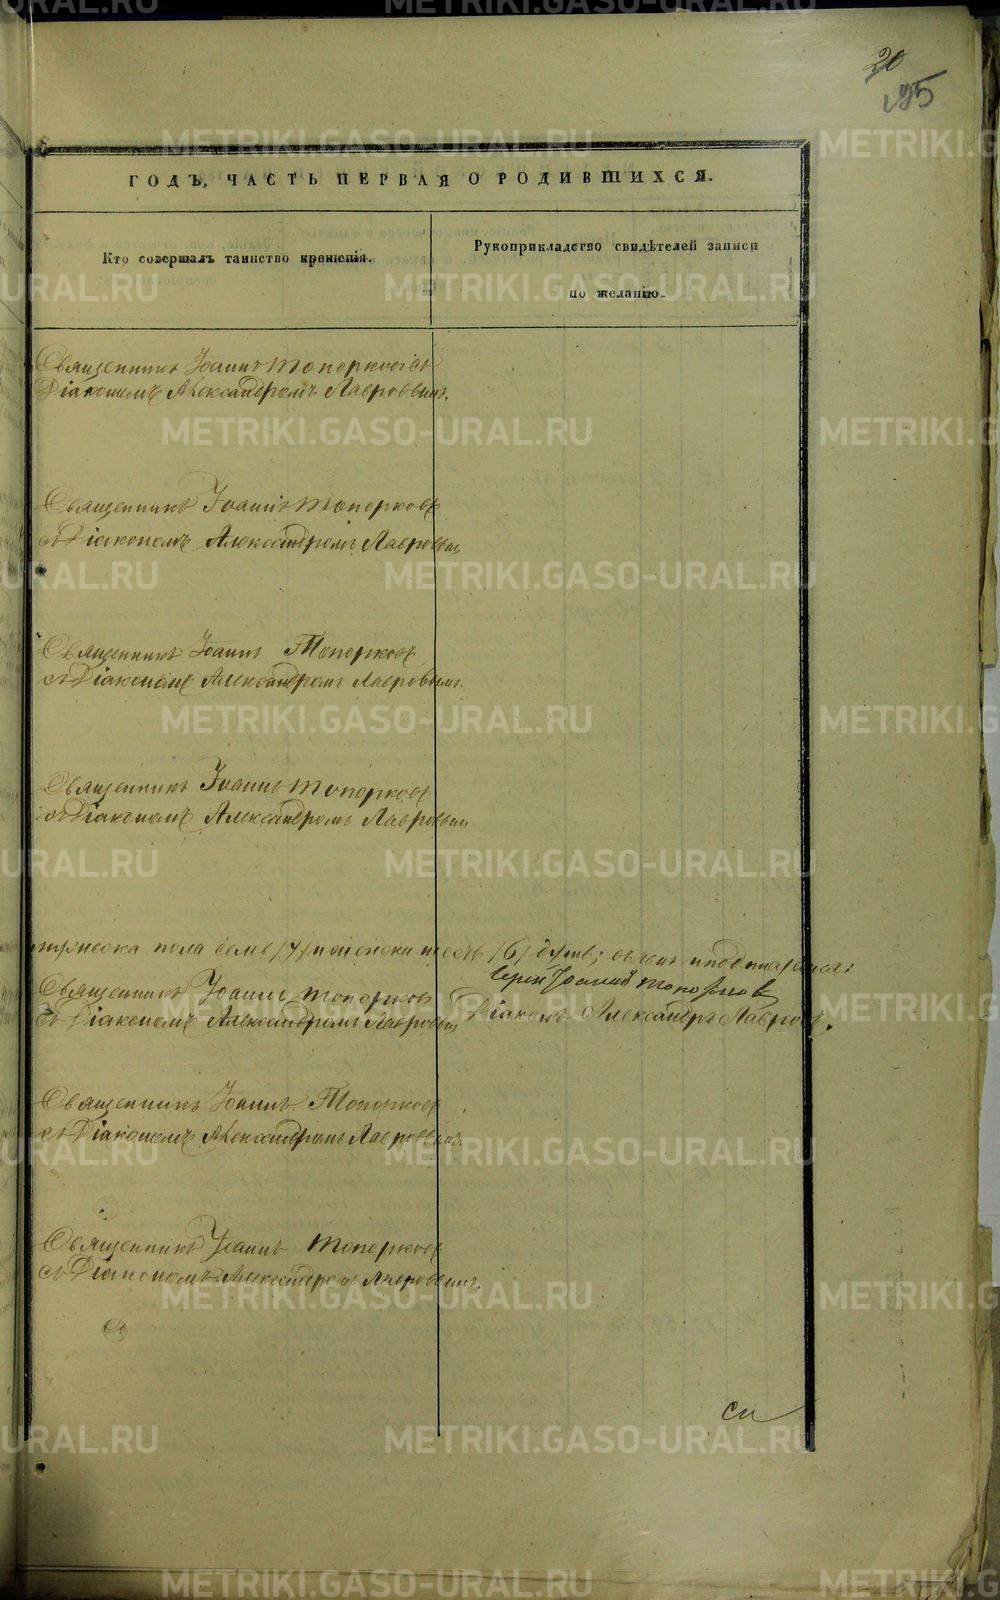 20
195
ГОДЪ, ЧАСТЬ ПЕРВАЯ О РОДИВШИХСЯ.
Кто совершалъ таинство крещенія.
Рукоприкладство свидѣтелей записи
по желанію.
Священникъ Іоаннъ Топорковъ съ
Діакономъ Александромъ Лавровымъ.
Священникъ Іоаннъ Топорковъ
съ Діакономъ Александромъ Лавровым
Священникъ Іоаннъ Топорковъ
съ Діакономъ Александромъ Лавровымъ.
Священникъ Іоаннъ Топорковъ
съ Діакономъ Александромъ Лавровым
мужеска пола семь /7/ и женска шесть /6/ душъ; въ чемъ и подписуемся:
Іерей Іоаннъ Топорковъ
Священникъ Іоаннъ Топорковъ
съ Діакономъ Александромъ Лавровым
Діаконъ Александръ Лавровъ.
Священникъ Іоаннъ Топорковъ
съ Діакономъ Александромъ Лавровымъ.
Священникъ Іоаннъ Топорковъ
съ Діакономъ Александромъ Лавровымъ.
METRIKI.GASO-URAL.RU